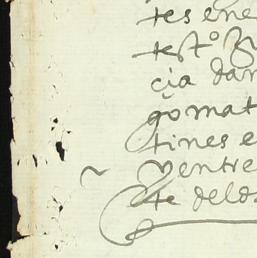 tes ene
testº
çia dan
gomat
tines e
yentre
te delos